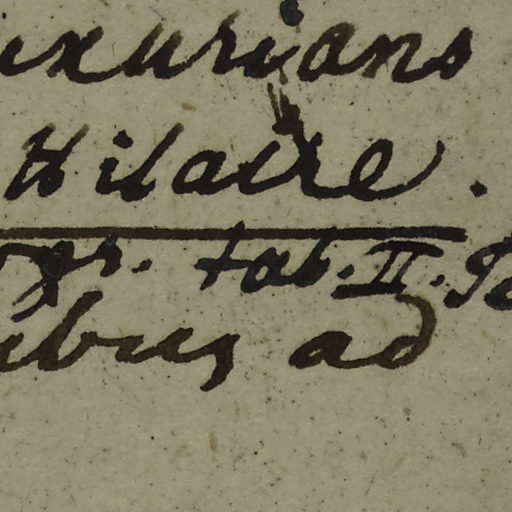 uxurians
Hilaire.
gr. tab. II.
ibus ad